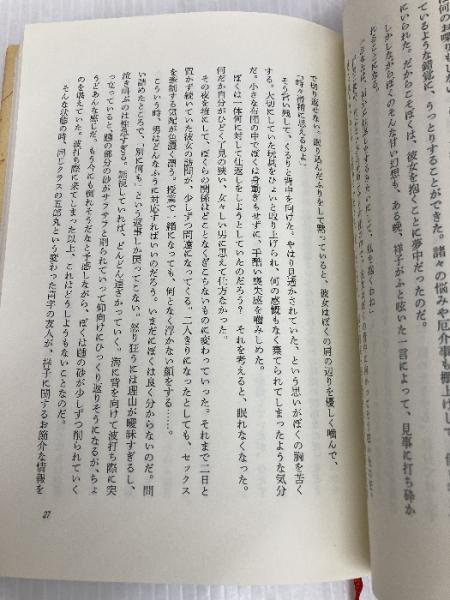 は何のお喋りもしない
ているような錯覚に、うっとりすることができた。諸々の悩みや厄介事も棚上げして、
にいられた。だからこそぼくは、彼女を抱くことに夢中だったのだ。
しかしながらぼくのそんな甘い幻想も、ある晩、祥子がふと呟いた一言によって、見事に打ち砕か
れることになる。
で切り返せない。眠り込んだふりをして黙っていると、彼女はぼくの肩の辺りを優しく噛んで、
「時々滑稽に思えるわよ」
そう言い残して、くるりと背中を向けた。やはり見透かされていた、という思いがぼくの胸を苦く
する。大切にしていた玩具をひょいと取り上げられ、何の感慨もなく棄てられてしまったような気分
だ。小さな布団の中でぼくは身動ぎもせずに、手酷い喪失感を噛みしめた。
ぼくは一体何に対して仕返しをしようとしていたのだろう? それを考えると、眠れなくなった。
何だか自分がひどく了見の狭い、女々しい男に思えて仕方なかった。
その夜を境にして、ぼくらの関係はどことなくぎこちないものに変わっていった。それまで二日と
置かず続いていた彼女の訪問が、少しずつ間遠になってくる。二人きりになったとしても、セックス
を牽制する気配が色濃く漂う。授業で一緒になっても、何となく浮かない顔をする……。
こういう時、男はどんなふうに対応すればいいのだろう。いまだにぼくは良く分からないのだ。問
い詰めたところで、「別に何も」という返事しか戻ってこない。怒り狂うには理由が曖昧すぎるし、
泣き叫ぶのは唐突すぎる。無視していれば、どんどん遠ざかっていく。海に背を向けて波打ち際に突
っ立っていると、踵の部分の砂がサラサラと削られていって仰向けにひっくり返りそうになるが、ちょ
うどあんな感じだ。もう今にも倒れそうだなと予感しながら、ぼくは踵の砂が少しずつ削られていく
のを堪えていた。波打ち際に来てしまった以上、これはどうしようもないことなのだ。
そんな状態の時、同じクラスの五郎丸という変わった苗字の友人が、祥子に関するお節介な情報を
27